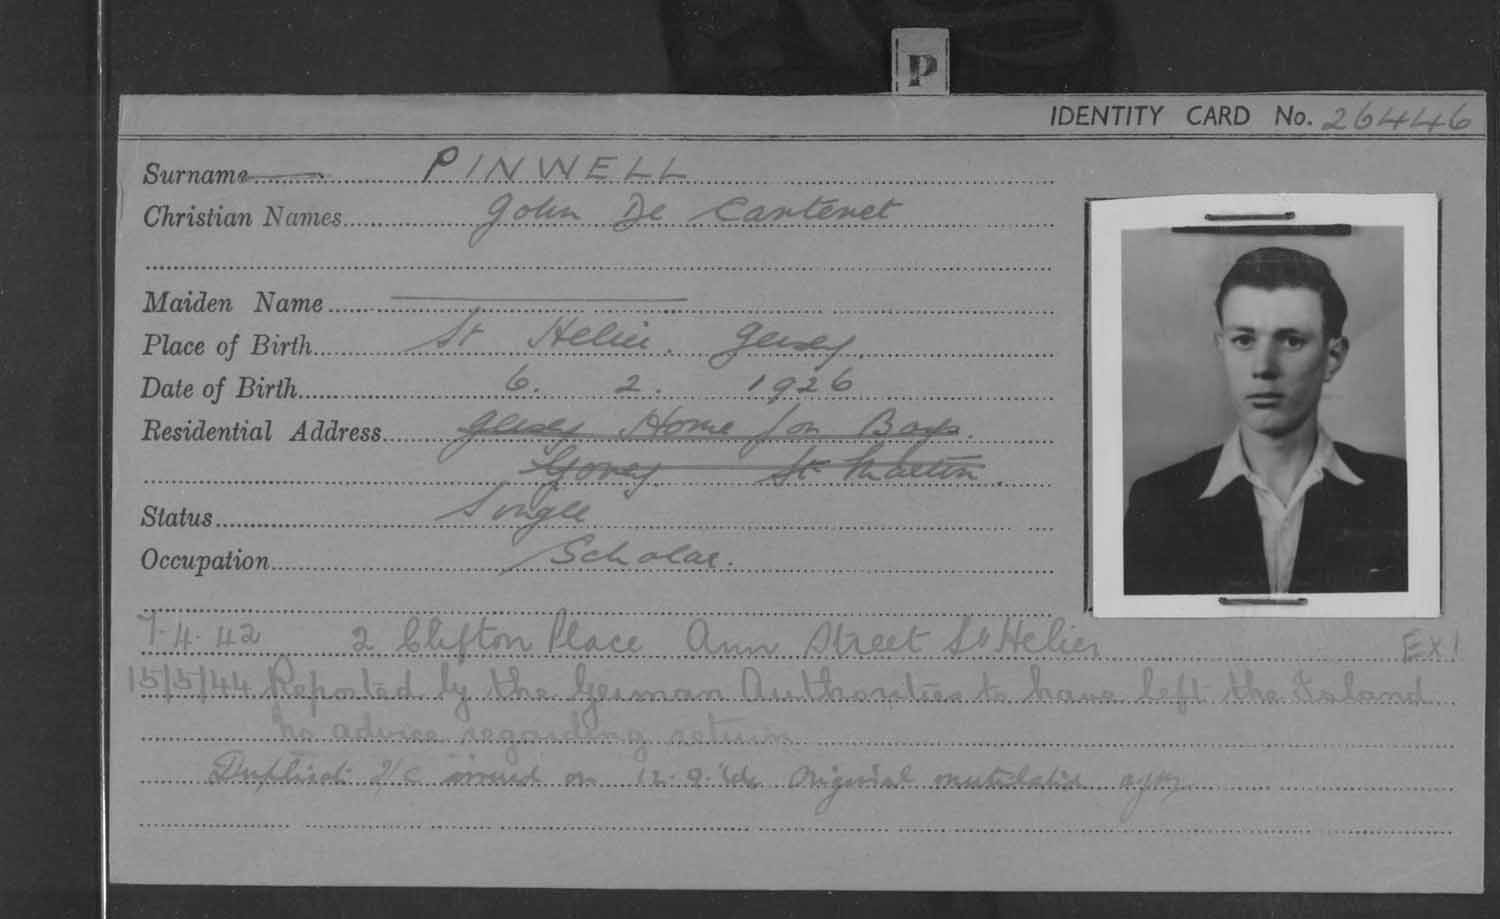 P
IDENTITY CARD No. 26446
Surname PINWELL
Christian Names John De Carteret
Maiden Name
Place of Birth St Helier. Jersey.
Date of Birth 6. 2. 1926
Residential Address Jersey Home for Boys.
Gorey St Martin.
Status Single
Occupation Scholar.
7.4.42 2 Clifton Place Ann Street St Helier Ex!
15/5/44 Reported by the German Authorities to have left the Island
No advice regarding return
Duplicate I/C issued on 12.9.44 Original mutilated